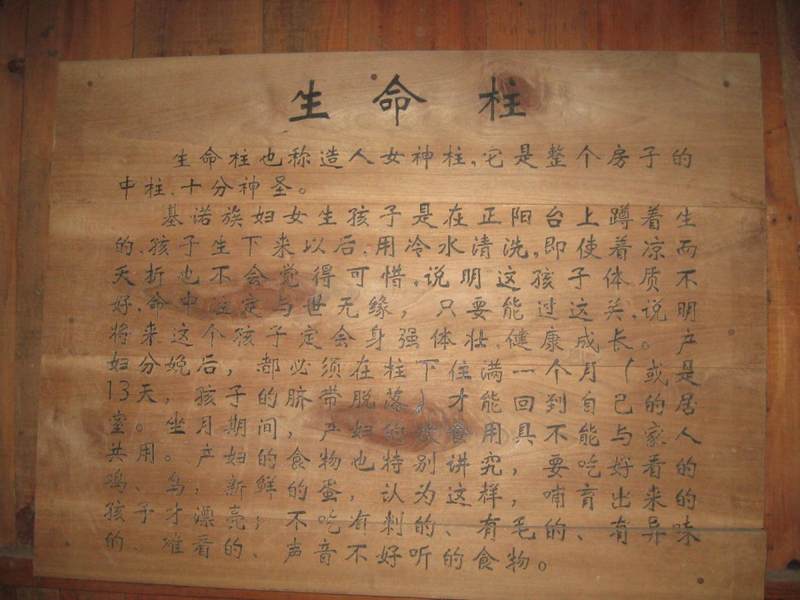 生命柱
生命柱也称造人女神柱，它是整个房子的
中柱、十分神圣。
基诺族妇女生孩子是在正阳台上蹲着生
的、孩子生下来以后、用冷水清洗，即使着凉而
夭折也不会觉得可惜，说明这孩子体质不
好、命中注定与世无缘，只要能过这关、说明
将来这个孩子定会身强体壮、健康成长。产
妇分娩后，都必须在柱下住满一个月（或是
13天，孩子的脐带脱落）才能回到自己的居
室。坐月期间，产妇的饮食用具不能与家人
共用。产妇的食物也特别讲究，要吃好看的
鸡、鸟，新鲜的蛋，认为这样，哺育出来的
孩子才漂亮；不吃有刺的、有毛的、有异味
的、难看的、声音不好听的食物。